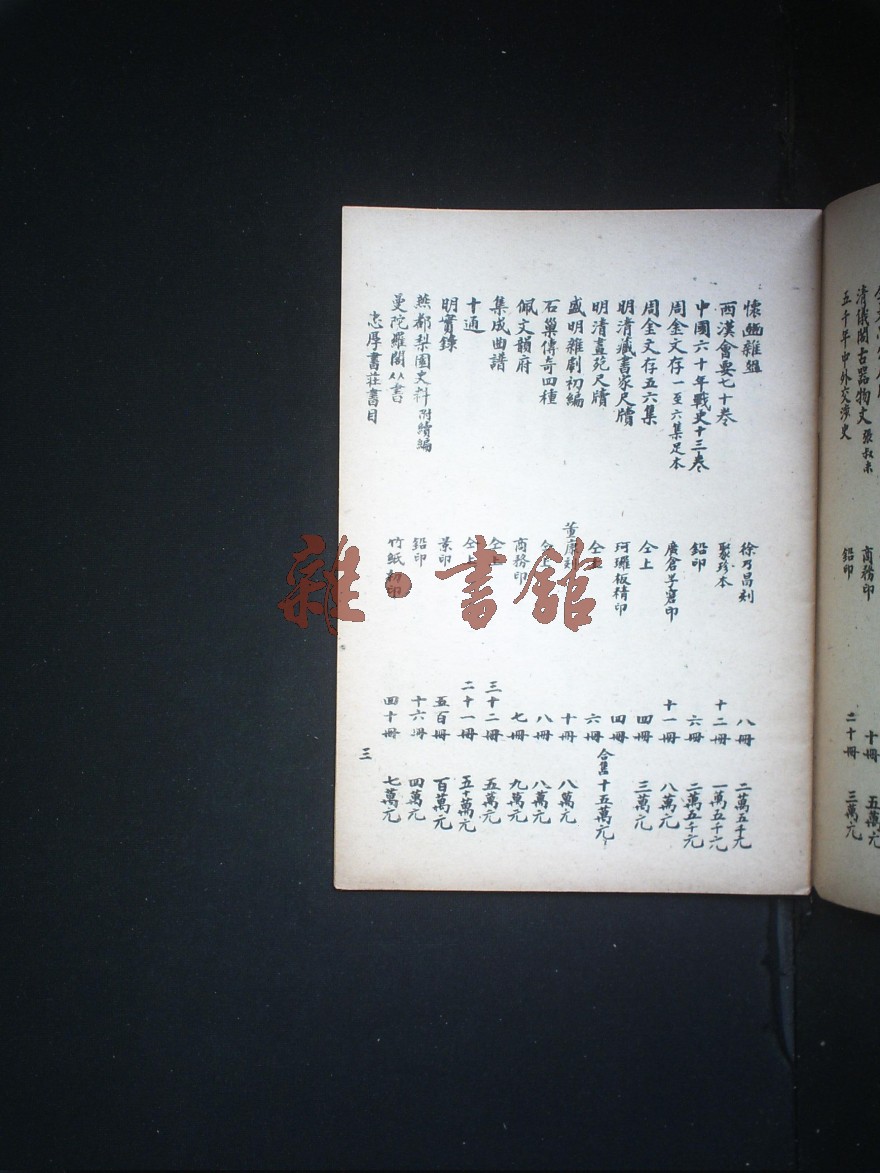 五千年中外交涉史 鉛印 二十冊 三萬元
清儀閣古器物文 張叔未 商務印 十冊 五萬元
懷豳雜俎 徐乃昌刻 八冊 二萬五千元
西漢會要七十卷 聚珍本 十二冊 一萬五千元
中國六十年戰史十三卷 鉛印 六冊 二萬五千元
周金文存一至六集足本 廣倉学窘印 十一冊 八萬元
周金文存五六集 仝上 四冊 三萬元
明清藏書家尺牘 珂瓏板精印 四冊
明清畫苑尺牘 仝上 六冊 合售十五萬元
盛明雜劇初編 董康刻 十冊 八萬元
石巢傳奇四種 仝上 八冊 八萬元
佩文韻府 商務印 七冊 九萬元
集成曲譜 仝上 三十二冊 五萬元
十通 仝上 二十一冊 五十萬元
明實錄 景印 五百冊 百萬元
燕都梨園史料附續編 鉛印 十六冊 四萬元
曼陀羅閣从書 竹紙初印 四十冊 七萬元
忠厚書莊書目 三
雜·書館